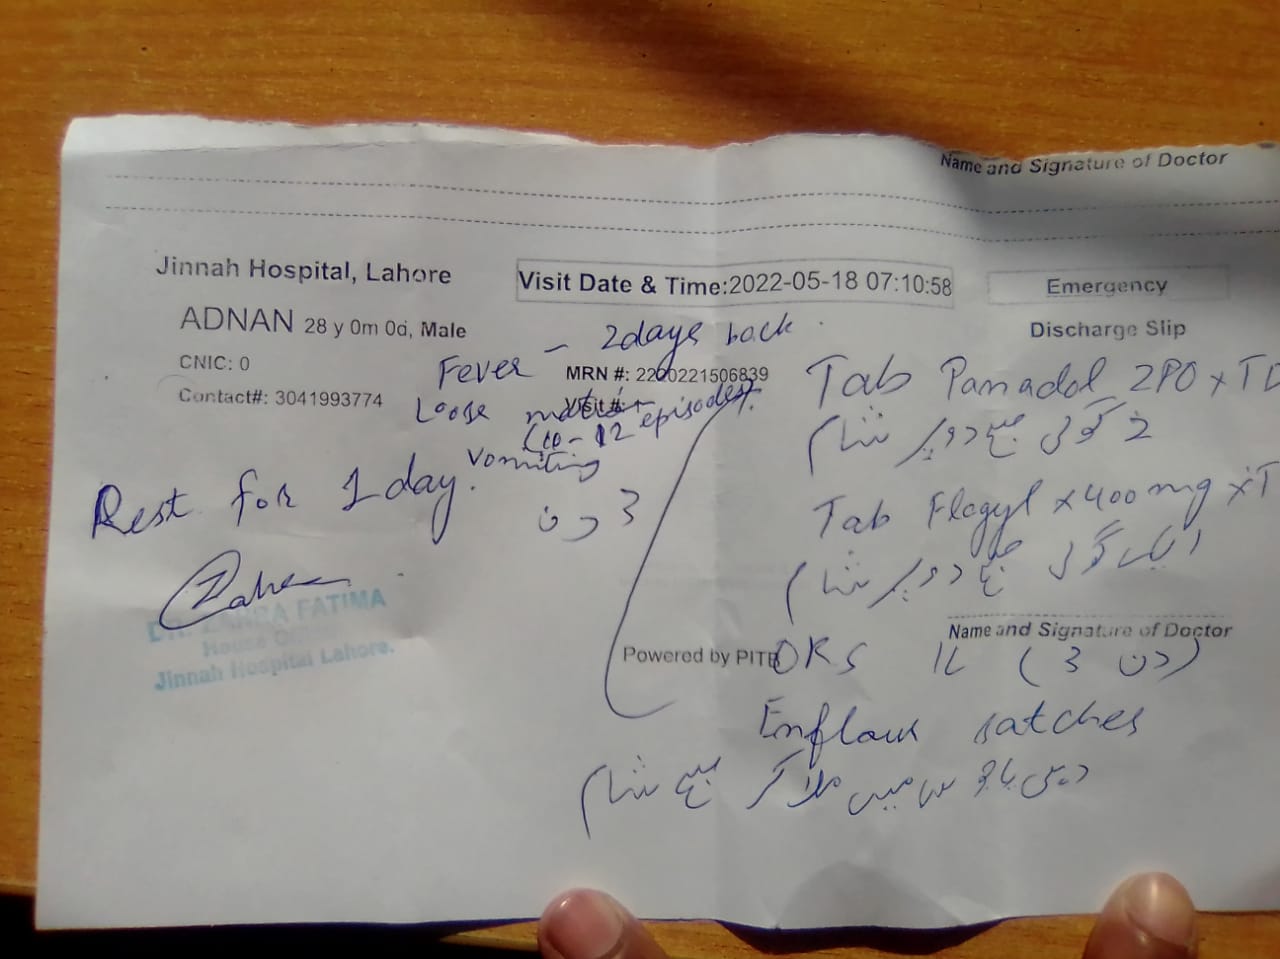 Name and Signature of Doctor
Jinnah Hospital, Lahore
Visit Date & Time:2022-05-18 07:10:58
Emergency
Discharge Slip
ADNAN 28 y 0m 0d, Male
CNIC: 0
Contact#: 3041993774
MRN #: 2200221506839
Visit #:
Fever - 2days back
Loose motion
(10-12 episodes)
Vomiting
Rest for 1 day.
3 دن
DR. ZAHRA FATIMA
House Officer
Jinnah Hospital Lahore.
Tab Panadol 2PO x TD
2 گولی صبح دوپہر شام
Tab Flagyl x 400mg x T
ایک گولی صبح دوپہر شام
Name and Signature of Doctor
Powered by PITB
ORS 1L (3 دن)
Enflour satches
میں ملا کر صبح شام